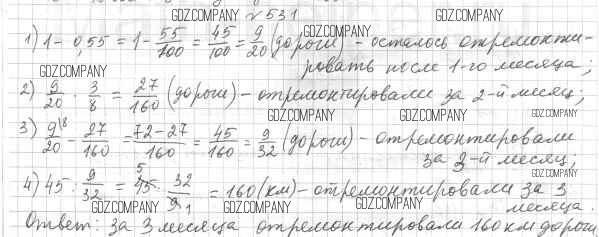 GDZ.COMPANY № 531
1) 1 - 0,55 = 1 - 55/100 = 45/100 = 9/20 (дороги) - осталось отремонти-
GDZ.COMPANY
GDZ.COMPANY ровать после 1-го месяца;
2) 9/20 · 3/8 = 27/160 (дороги) - отремонтировали за 2-й месяц;
GDZ.COMPANY GDZ.COMPANY GDZ.COMPANY
3) 9/20 \8 - 27/160 = 72-27/160 = 45/160 = 9/32 (дороги) - отремонтировали
за 3-й месяц;
GDZ.COMPANY
4) 45 : 9/32 = 45 5 · 32/9 1 = 160 (км) - отремонтировали за 3
GDZ.COMPANY GDZ.COMPANY GDZ.COMPANY месяца.
Ответ: за 3 месяца отремонтировали 160 км дороги